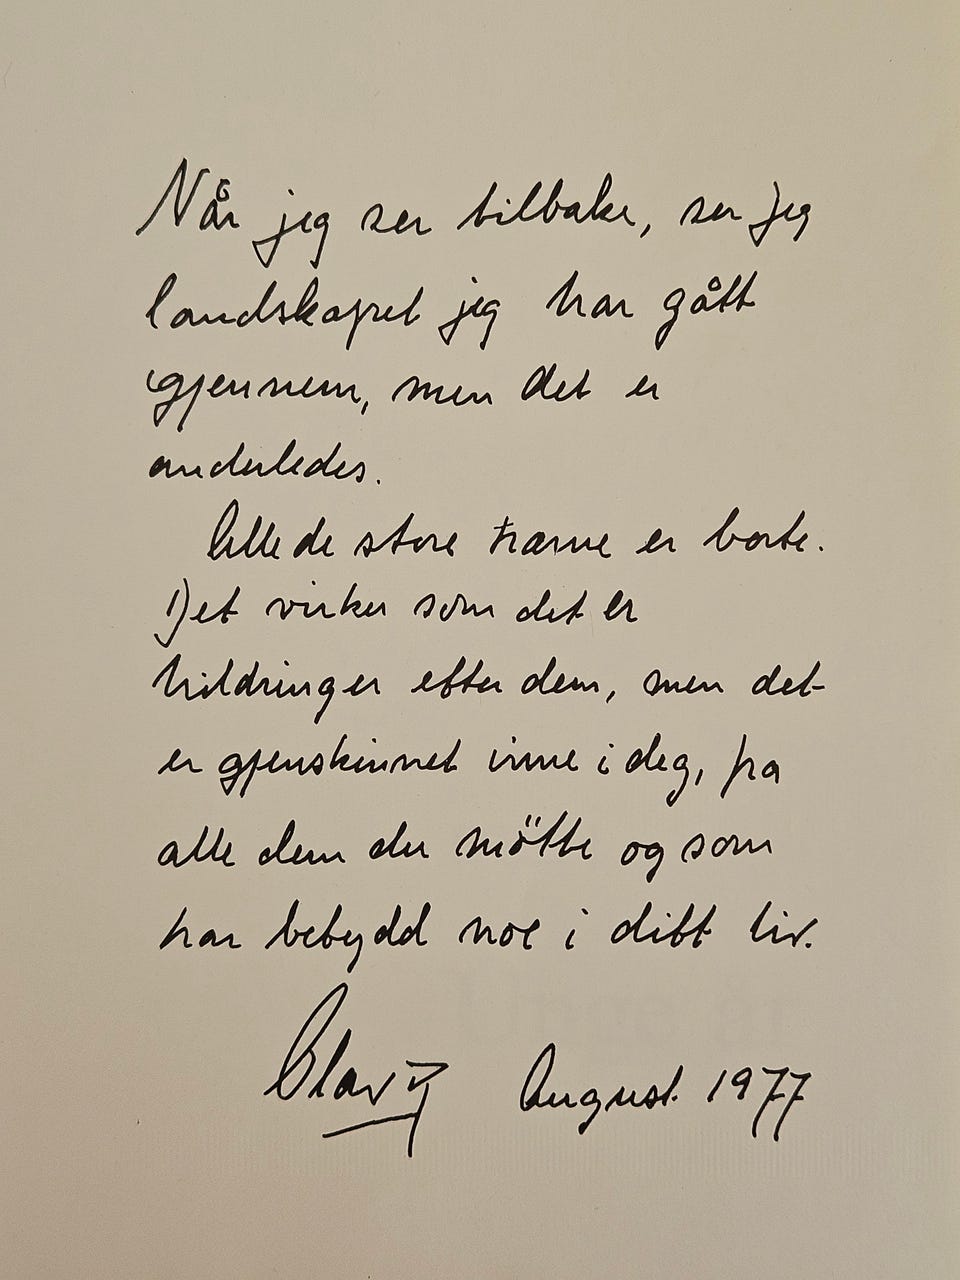 Når jeg ser tilbake, ser jeg
landskapet jeg har gått
gjennem, men det er
anderledes.
Alle de store trærne er borte.
Det virker som det er
hildringer efter dem, men det
er gjenskinnet inne i deg, fra
alle dem du mötte og som
har betydd noe i ditt liv.
Olav
August 1977